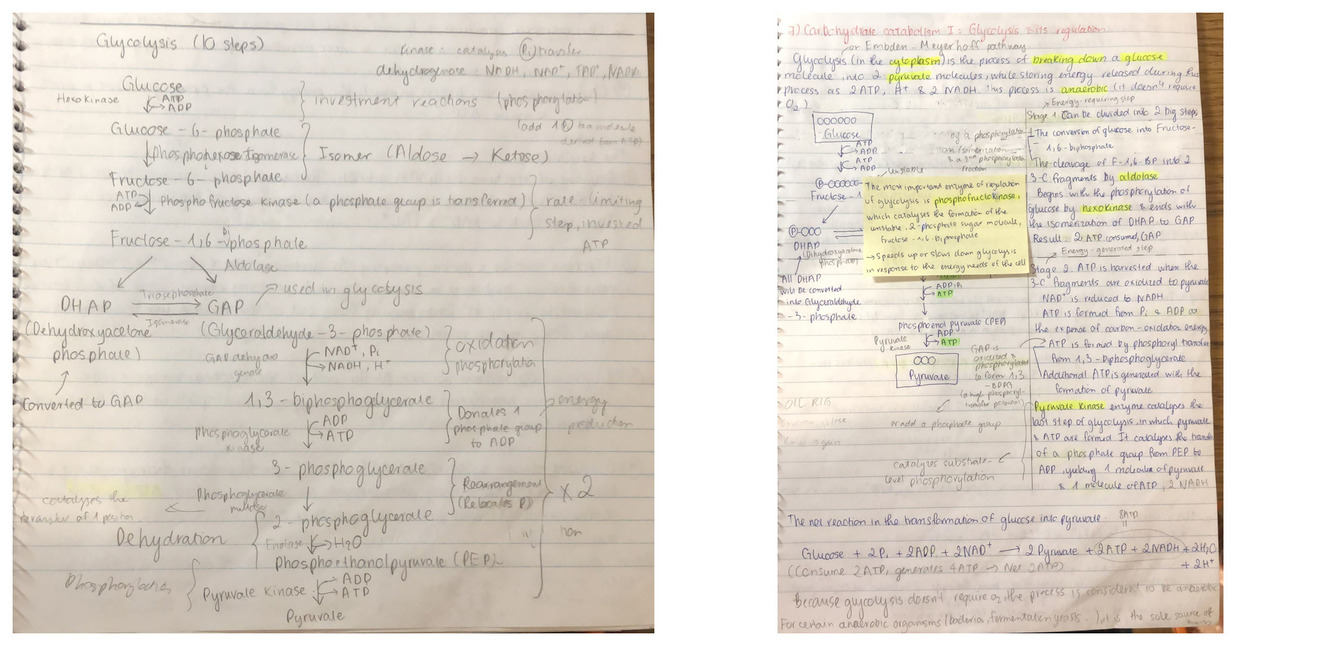 Glycolysis (10 steps)
Kinase: catalyses (Pi) transfer
dehydrogenase: NADH, NAD⁺, FAD⁺, NADPH
Glucose
Hexokinase ATP
ADP
} investment reactions (phosphorylation)
Glucose - 6 - phosphate
Phosphohexose Isomerase } Isomer (Aldose → Ketose)
Fructose - 6 - phosphate
ATP
ADP Phosphofructose Kinase (a phosphate group is transferred) } rate limiting
step, invested
ATP
Fructose - 1,6 - biphosphate
Aldolase
DHAP Triosephosphate GAP → used in glycolysis
Isomerase
(Dehydroxyacetone
phosphate)
Converted to GAP
(Glyceraldehyde - 3 - phosphate) } oxidation
phosphorylation
GAP dehydro
genase
NAD⁺, Pi
NADH, H⁺
1,3 - biphosphoglycerate
phosphoglycerate
kinase
ADP
ATP
Donates 1
phosphate group
to ADP
energy
production
3 - phosphoglycerate
Rearrangement
(Relocates P)
x 2
Phosphoglycerate
mutase
catalyses the
transfer of 1 position
2 - phosphoglycerate
Dehydration
Enolase H₂O
Phosphoethanolpyruvate (PEP)
Phosphorylation
Pyruvate Kinase ADP
ATP
Pyruvate
7) Carbohydrate catabolism I: Glycolysis & its regulation
or Embden - Meyerhoff pathway
Glycolysis (in the cytoplasm) is the process of breaking down a glucose
molecule into 2 pyruvate molecules, while storing energy released during this
process as 2ATP, H⁺ & 2 NADH. This process is anaerobic (it doesn't require
O₂)
Glucose
ATP
ADP
ATP
ADP
unstable
P-OOOOOO-
Fructose - 1
P-OOO
DHAP
(Dihydroxyacetone
phosphate)
All DHAP
will be converted
into Glyceraldehyde
- 3 - phosphate
The most important enzyme of regulation
of glycolysis is phosphofructokinase,
which catalyses the formation of the
unstable, 2-phosphate sugar molecule,
Fructose - 1,6 - biphosphate
→ Speeds up or slows down glycolysis in
response to the energy needs of the cell
ADP+Pi
ATP
Phosphoenol pyruvate (PEP)
Pyruvate
kinase
ADP
ATP
Pyruvate
GAP is
oxidized &
phosphorylated
to form 1,3
- BDPG
(a high phosphoryl-
transfer potential)
OIL RIG
→ add a phosphate group
catalyzes substrate-
level phosphorylation
Energy-requiring step
Stage 1 Can be divided into 2 big steps
The conversion of glucose into Fructose-
1,6 - biphosphate
The cleavage of F-1,6-BP into 2
3-C fragments by aldolase
Begins with the phosphorylation of
glucose by hexokinase & ends with
the isomerization of DHAP to GAP
Result: 2 ATP consumed, GAP
→ Energy-generated step
Stage 2: ATP is harvested when the
3-C fragments are oxidized to pyruvate
NAD⁺ is reduced to NADH
ATP is formed from Pi & ADP at
the expense of carbon-oxidation energy
ATP is formed by phosphoryl transfer
from 1,3-biphosphoglycerate
Additional ATP is generated with the
formation of pyruvate
Pyruvate kinase enzyme catalyses the
last step of glycolysis, in which pyruvate
& ATP are formed. It catalyses the transfer
of a phosphate group from PEP to
ADP, yielding 1 molecule of pyruvate
& 1 molecule of ATP, 2 NADH
The net reaction in the transformation of glucose into pyruvate:
8ATP
Glucose + 2Pi + 2ADP + 2NAD⁺ → 2 Pyruvate + 2ATP + 2NADH + 2H₂O
+ 2H⁺
(Consume 2ATP, generates 4ATP → Net 2ATP)
Because glycolysis doesn't require O₂, the process is considered to be anaerobic
For certain anaerobic organisms (bacteria, fermentation yeasts..) it is the sole source of